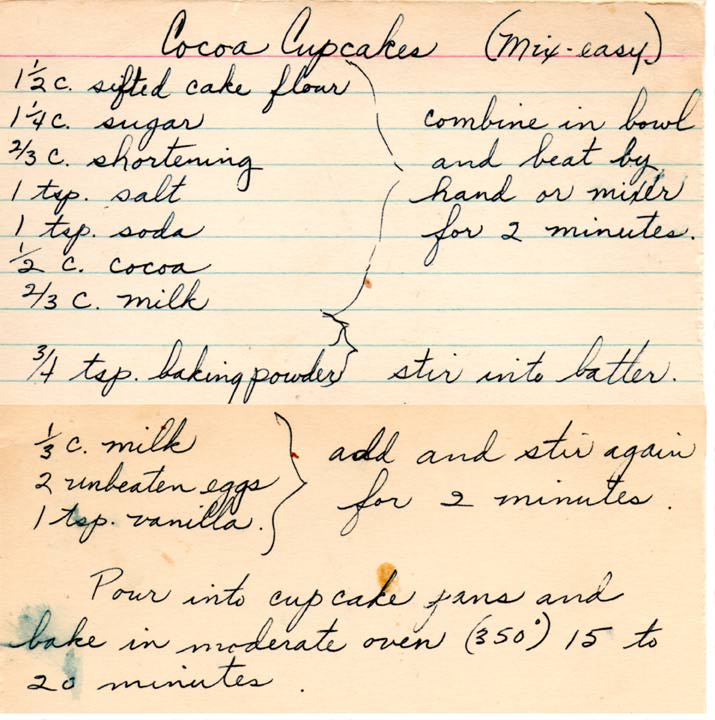 Cocoa Cupcakes (Mix-easy)
1½ c. sifted cake flour
1¼ c. sugar
2/3 c. shortening
1 tsp. salt
1 tsp. soda
½ c. cocoa
2/3 c. milk
combine in bowl
and beat by
hand or mixer
for 2 minutes.
3/4 tsp. baking powder stir into batter.
1/3 c. milk
2 unbeaten eggs
1 tsp. vanilla.
add and stir again
for 2 minutes.
Pour into cupcake pans and
bake in moderate oven (350°) 15 to
20 minutes.